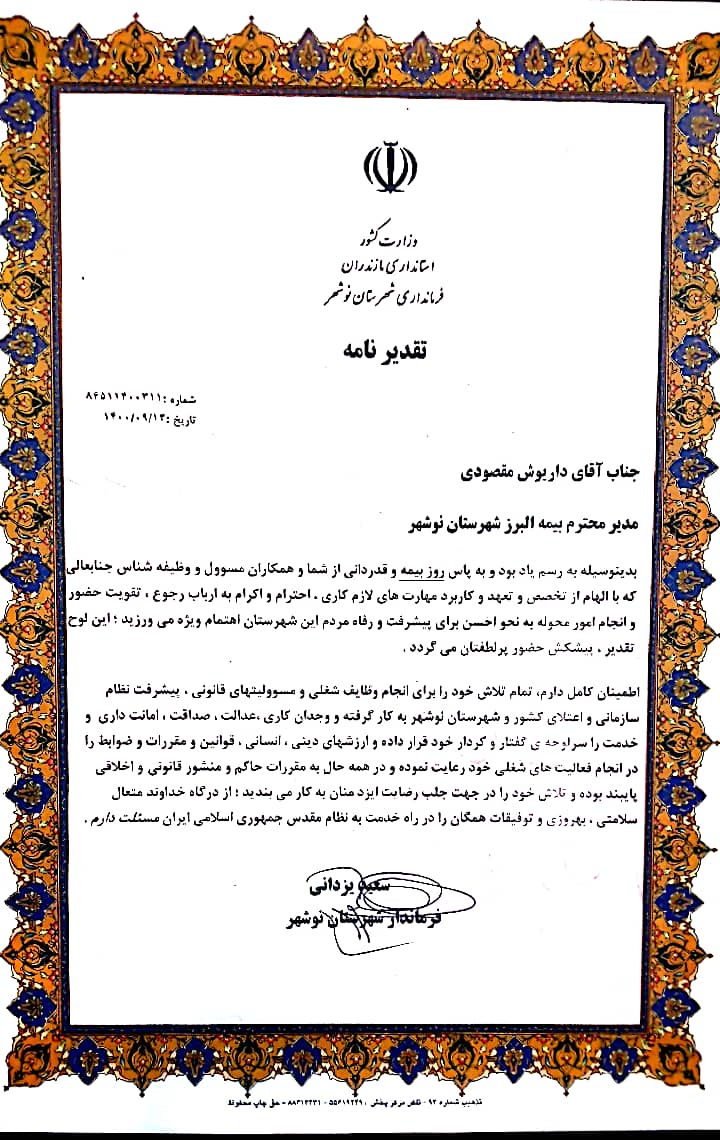 وزارت کشور
استانداری مازندران
فرمانداری شهرستان نوشهر
تقدیر نامه
شماره :۸۶۵۱۱۴۰۰۳۱۱
تاریخ :۱۴۰۰/۰۹/۱۳
جناب آقای داریوش مقصودی
مدیر محترم بیمه البرز شهرستان نوشهر
بدینوسیله به رسم یاد بود و به پاس روز بیمه و قدردانی از شما و همکاران مسوول و وظیفه شناس جنابعالی
که با الهام از تخصص و تعهد و کاربرد مهارت های لازم کاری ، احترام و اکرام به ارباب رجوع ، تقویت حضور
و انجام امور محوله به نحو احسن برای پیشرفت و رفاه مردم این شهرستان اهتمام ویژه می ورزید ؛ این لوح
تقدیر ، پیشکش حضور پرلطفتان می گردد .
اطمینان کامل دارم، تمام تلاش خود را برای انجام وظایف شغلی و مسوولیتهای قانونی ، پیشرفت نظام
سازمانی و اعتلای کشور و شهرستان نوشهر به کار گرفته و وجدان کاری ،عدالت ، صداقت ، امانت داری و
خدمت را سرلوحه ی گفتار و کردار خود قرار داده و ارزشهای دینی ، انسانی ، قوانین و مقررات و ضوابط را
در انجام فعالیت های شغلی خود رعایت نموده و در همه حال به مقررات حاکم و منشور قانونی و اخلاقی
پایبند بوده و تلاش خود را در جهت جلب رضایت ایزد منان به کار می بندید ؛ از درگاه خداوند متعال
سلامتی ، بهروزی و توفیقات همگان را در راه خدمت به نظام مقدس جمهوری اسلامی ایران مسئلت دارم .
سعید یزدانی
فرماندار شهرستان نوشهر
تذهیب شماره ۹۲ - تلفن مرکز پخش : ۵۵۶۱۹۲۴۹ - ۸۸۳۱۳۲۳۱ - حق چاپ محفوظ